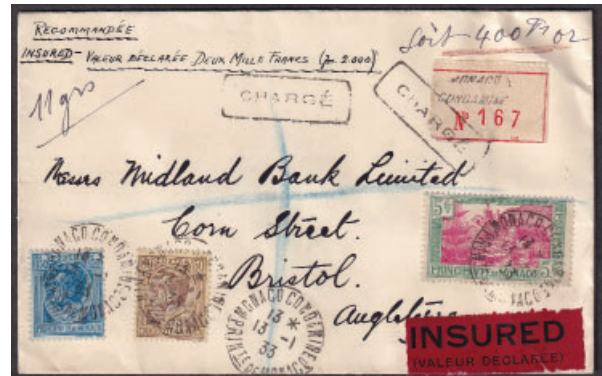 RECOMMANDÉE
INSURED - VALEUR DÉCLARÉE DEUX MILLE FRANCS (fr. 2.000)
Soit 400 Fr or
11 grs
CHARGÉ
CHARGÉ
MONACO
CONDAMINE
№ 167
Messrs Midland Bank Limited
Corn Street.
Bristol.
Angleterre
MONACO CONDAMINE
PRINCIPAUTÉ DE MONACO
13 *
13 -1
33
INSURED
(VALEUR DÉCLARÉE)